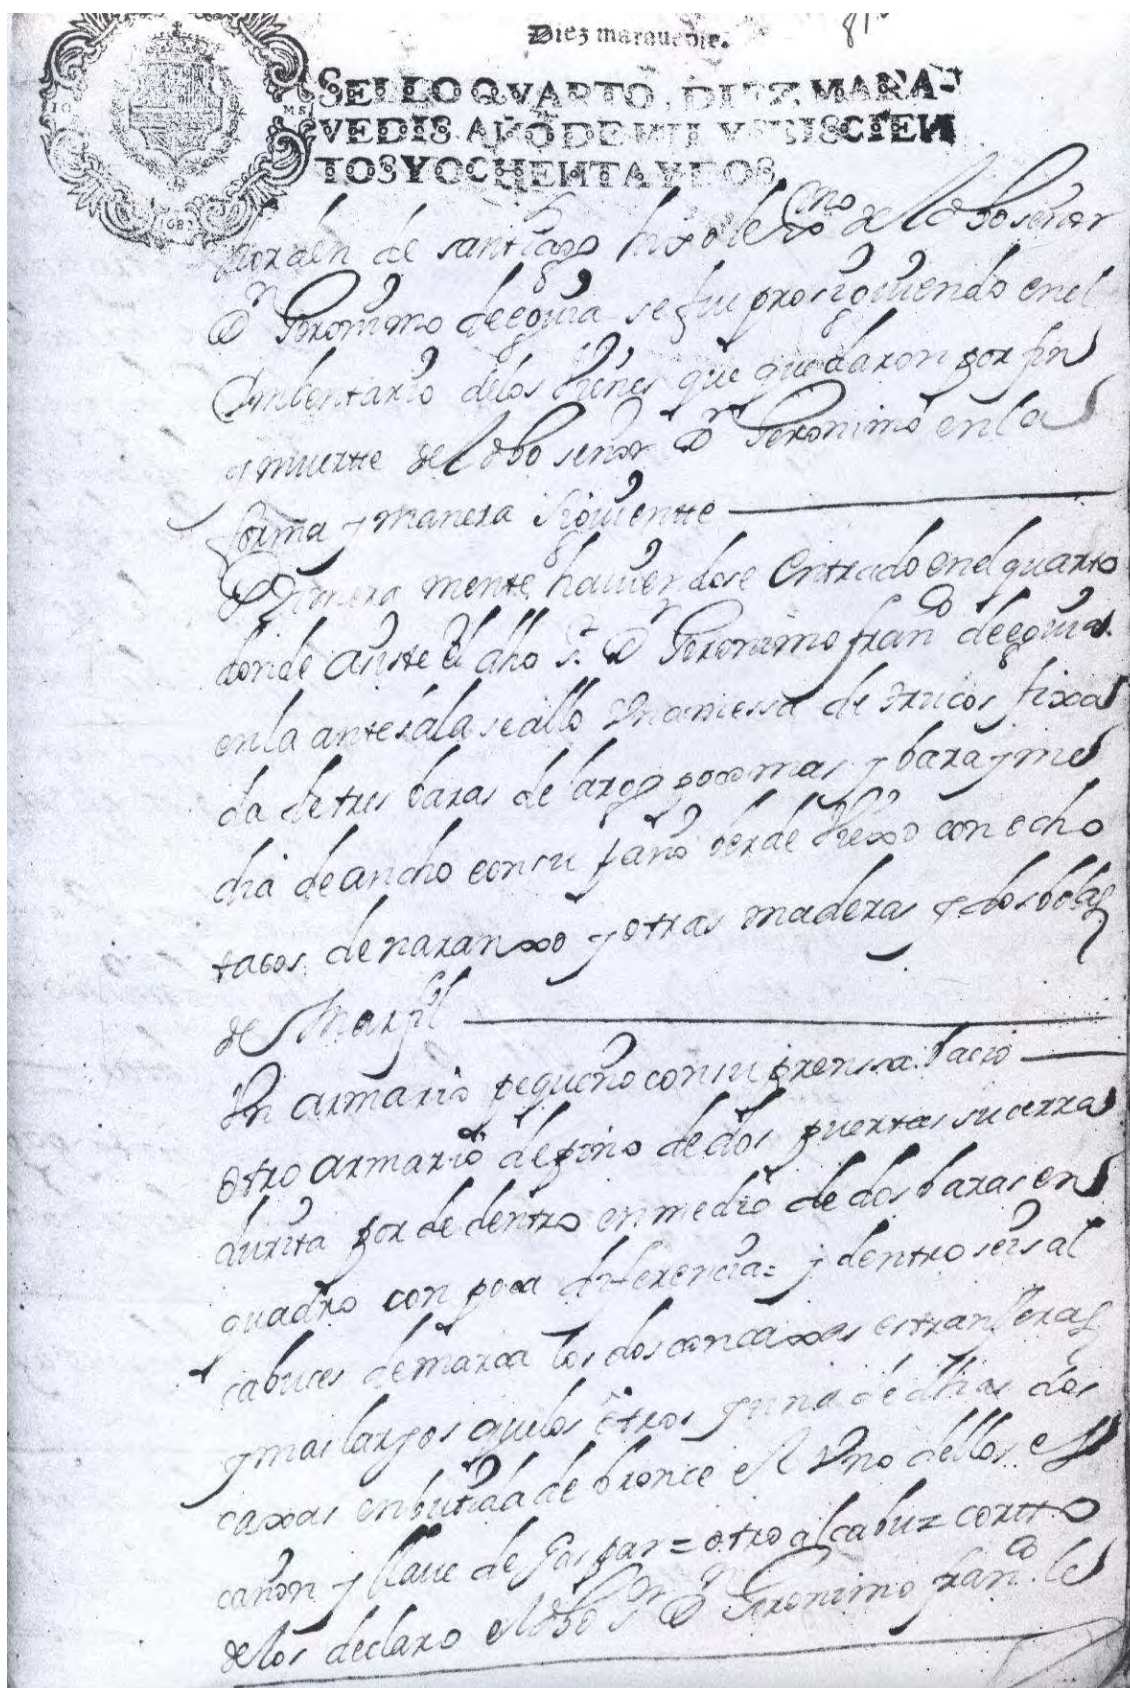 Diez maravedis.
SELLO QVARTO, DIEZ MARA-
VEDIS, AÑO DE MIL Y SEISCIEN
TOS Y OCHENTA Y DOS
horden de santiago hijo del dho señor
Dn Geronimo de eguia se fue prosiguiendo en el
Imbentario de los vienes que quedaron por fin
y muertte del dho señor Dn Geronimo en la
forma y manera siguientte
Primera mente, haviendose entrado en el quarto
donde asiste el dho Sr. Dn Geronimo franco de eguia
en la antesala se allo una messa de trucos fixa
da de tres baras de largo poco mas y bara y me
dia de ancho con su paño berde biexo con ocho
tacos de naranxo y otras maderas y dos bolas
de Marfil
Un armario pequeño con su prenssa bacio
otro armario de pino de dos puertas su cerra
durita por de dentro en medio de dos baras en
quadro con poca diferencia = y dentro seis al
cabuces de marca los dos con caxas estranjeras
y mas largos que los otros y una de dhas dos
caxas enbutida de bronce el uno dellos es
cañon y llave de Gaspar = otro alcabuz cortto
de los declaro el dho Sr Dn Geronimo franco le